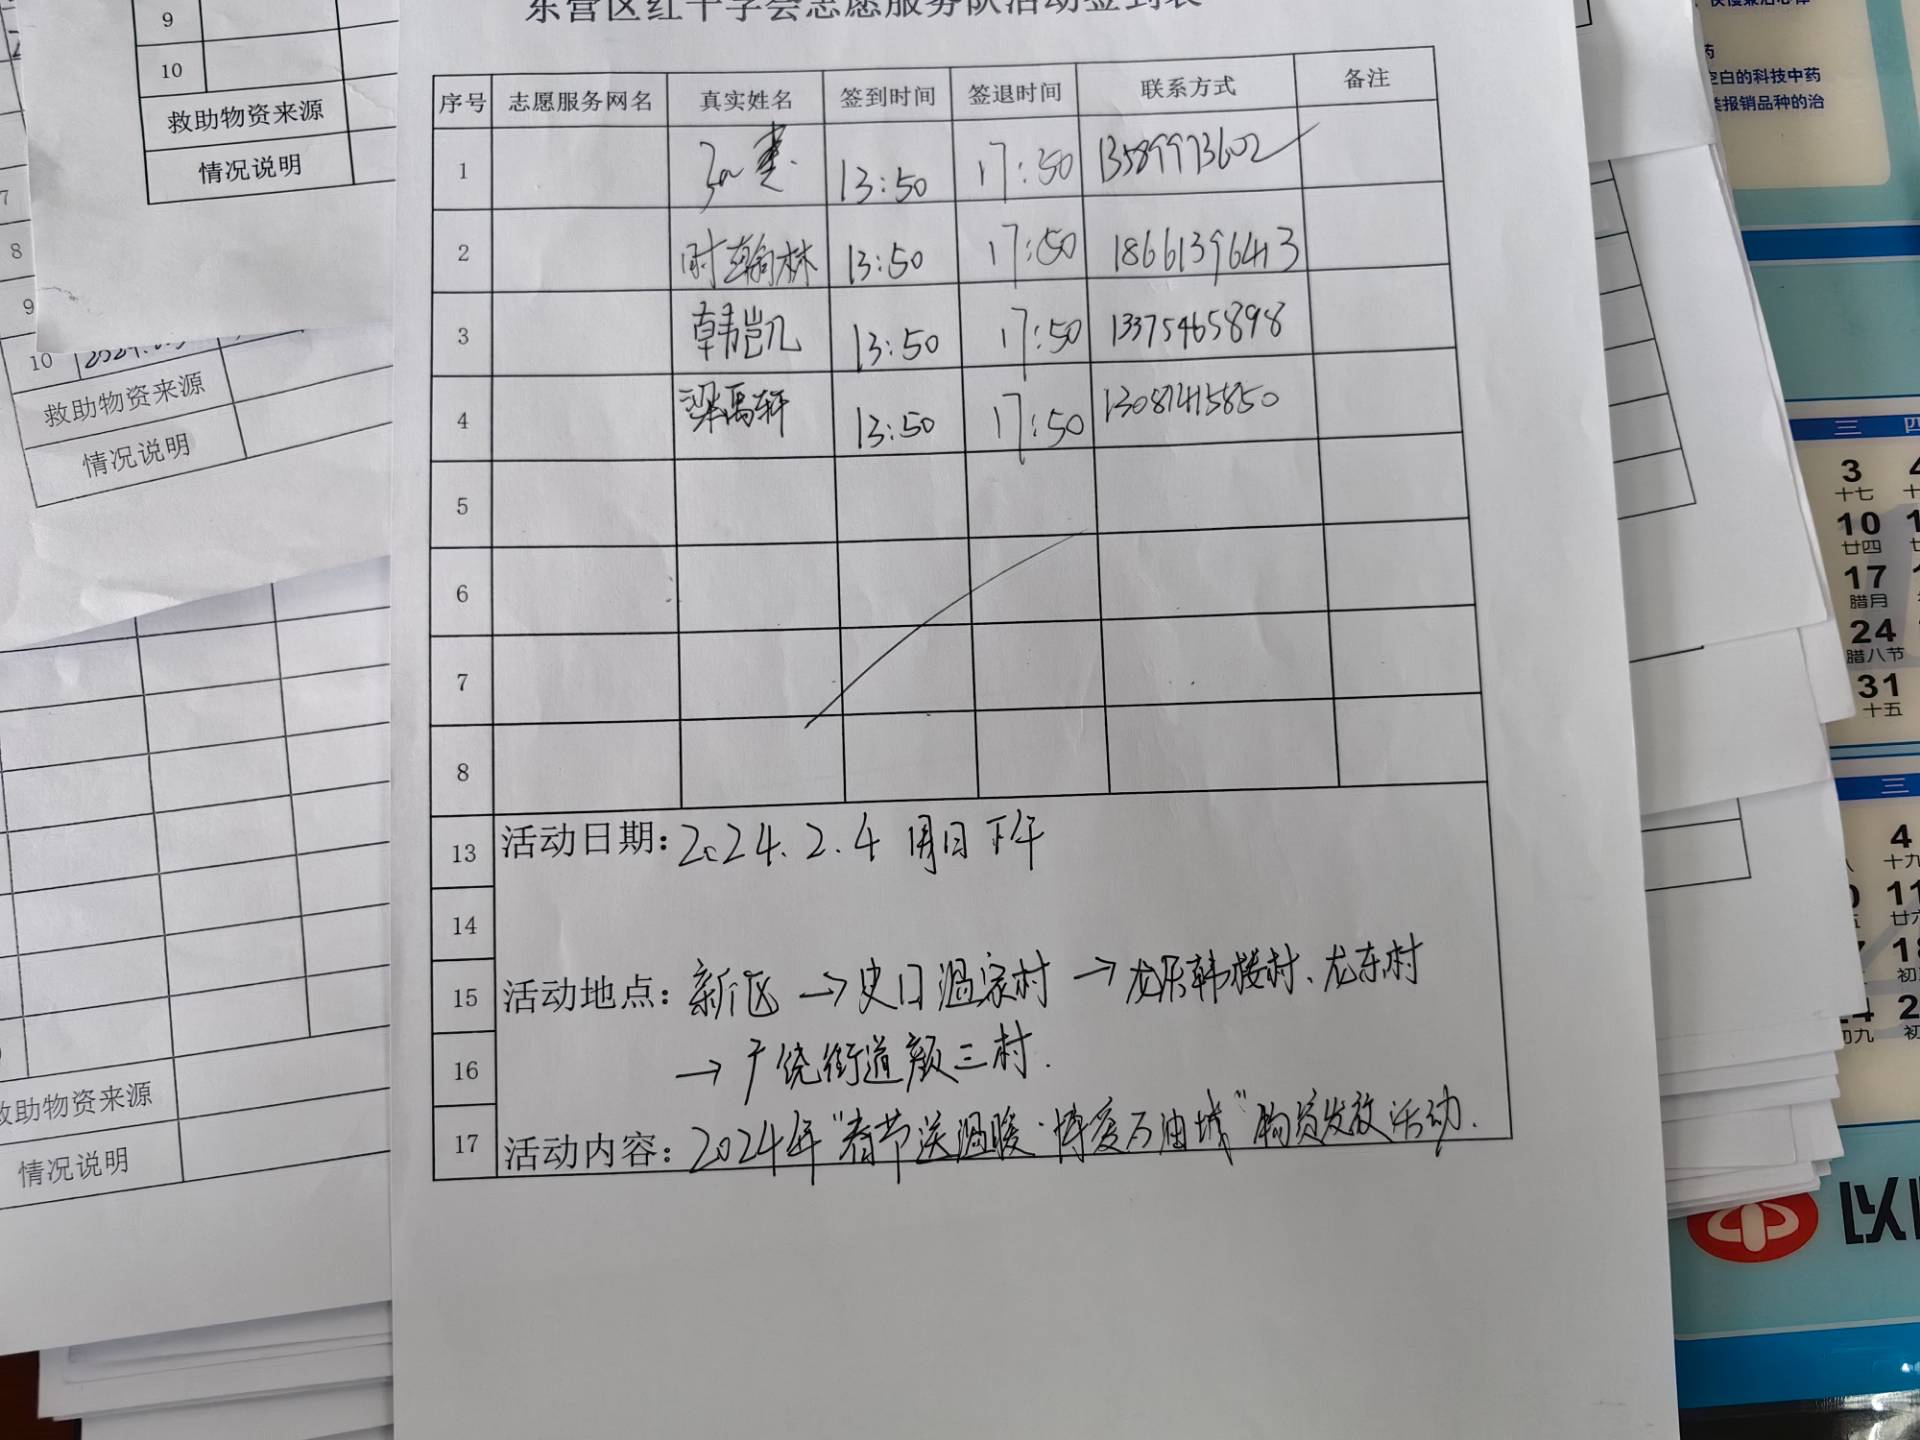 东营区红十字会志愿服务队活动签到表
序号 志愿服务网名 真实姓名 签到时间 签退时间 联系方式 备注
1 13:50 17:50 13589973602
2 时翰林 13:50 17:50 18661396413
3 韩凯 13:50 17:50 13375465898
4 梁禹轩 13:50 17:50 13087415850
5
6
7
8
13 活动日期：2024.2.4 周日下午
14
15 活动地点：新区→史口温家村→龙居韩楼村、龙东村
16 →广饶街道颜三村.
17 活动内容：2024年“春节送温暖·博爱石油城”物资发放活动.
9
10
救助物资来源
情况说明
7
8
9
10
救助物资来源
情况说明
救助物资来源
情况说明
药
空白的科技中药
类报销品种的治
三 四
3
十七
10
廿四
17
腊月
24
腊八节
31
十五
三
4
十九
11
廿六